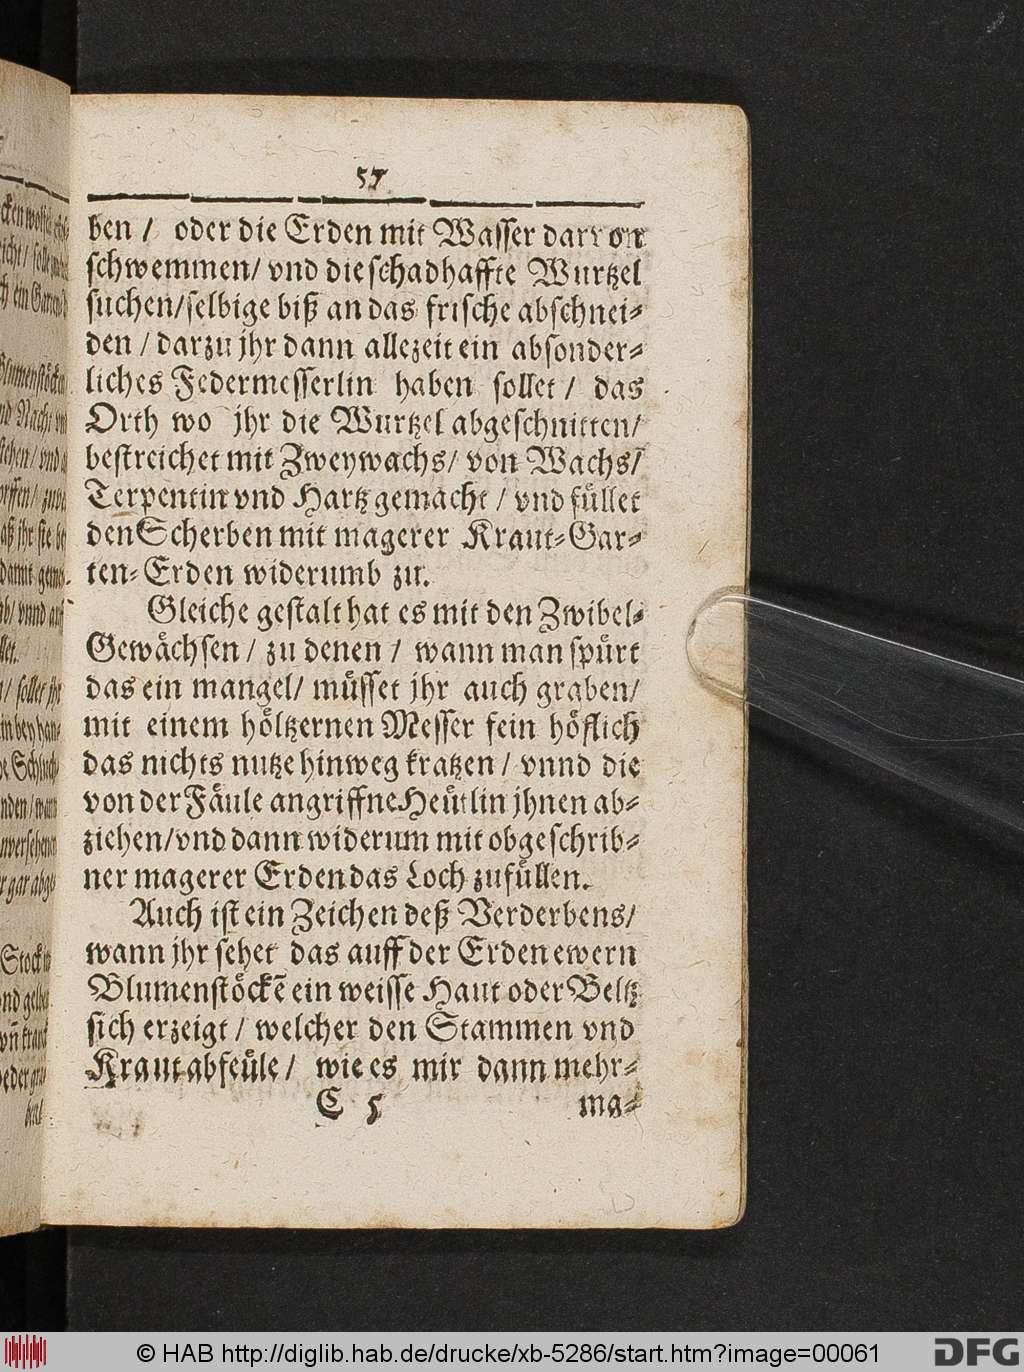 57
ben / oder die Erden mit Wasser darvon
schwemmen / vnd die schadhaffte Wurtzel
suchen / selbige biß an das frische abschnei-
den / darzu jhr dann allezeit ein absonder-
liches Federmesserlin haben sollet / das
Orth wo jhr die Wurtzel abgeschnitten /
bestreichet mit Zweywachs / von Wachs /
Terpentin vnd Hartz gemacht / vnd füllet
den Scherben mit magerer Kraut-Gar-
ten-Erden widerumb zu.
Gleiche gestalt hat es mit den Zwibel-
Gewächsen / zu denen / wann man spürt
das ein mangel / müsset jhr auch graben /
mit einem höltzernen Messer fein höflich
das nichts nutze hinweg kratzen / vnnd die
von der Fäule angriffne Heütlin jhnen ab-
ziehen / vnd dann widerum mit obgeschrib-
ner magerer Erden das Loch zufüllen.
Auch ist ein Zeichen deß Verderbens /
wann jhr sehet das auff der Erden ewern
Blumenstöckē ein weisse Haut oder Beltz
sich erzeigt / welcher den Stammen vnd
Kraut abfeüle / wie es mir dann mehr-
C 5 ma-
© HAB http://diglib.hab.de/drucke/xb-5286/start.htm?image=00061
DFG